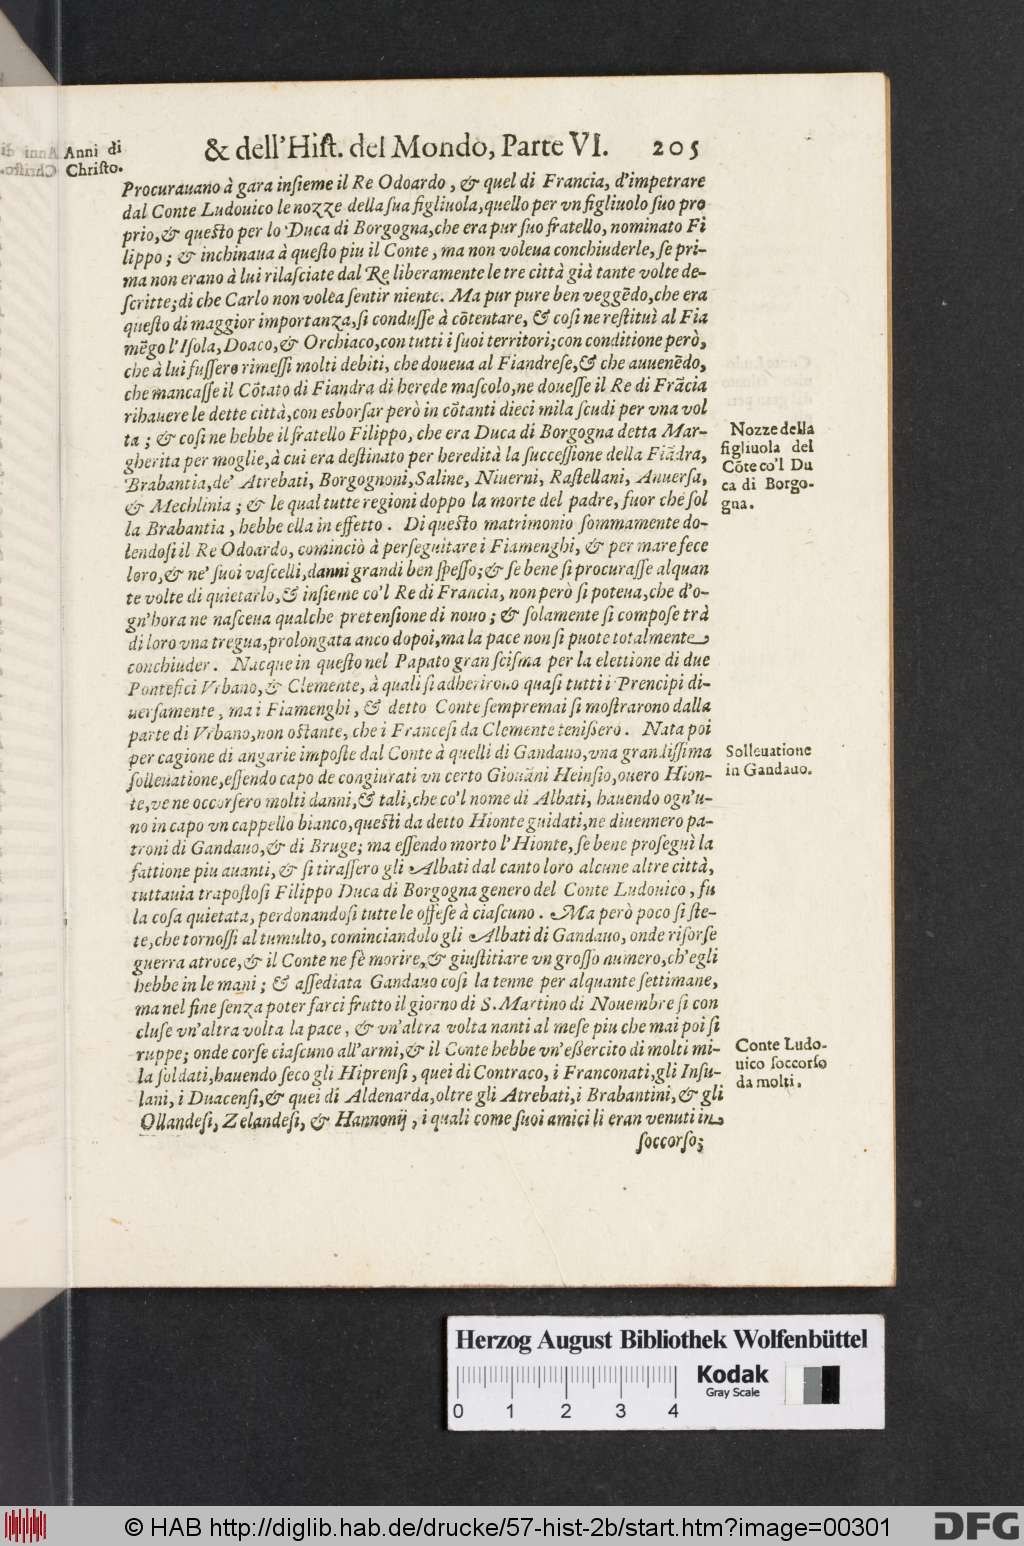 Anni di
Christo.
& dell'Hist. del Mondo, Parte VI. 205
Procurauano à gara insieme il Re Odoardo, & quel di Francia, d'impetrare
dal Conte Ludouico le nozze della sua figliuola, quello per vn figliuolo suo pro
prio, & questo per lo Duca di Borgogna, che era pur suo fratello, nominato Fi
lippo; & inchinaua à questo piu il Conte, ma non voleua conchiuderle, se pri-
ma non erano à lui rilasciate dal Re liberamente le tre città già tante volte de-
scritte; di che Carlo non volea sentir niente. Ma pur pure ben veggēdo, che era
questo di maggior importanza, si condusse à cōtentare, & cosi ne restituì al Fia
mēgo l'Isola, Doaco, & Orchiaco, con tutti i suoi territori; con conditione però,
che à lui fussero rimessi molti debiti, che doueua al Fiandrese, & che auuenēdo,
che mancasse il Cōtato di Fiandra di herede mascolo, ne douesse il Re di Frācia
rihauere le dette città, con esborsar però in cōtanti dieci mila scudi per vna vol
ta; & cosi ne hebbe il fratello Filippo, che era Duca di Borgogna detta Mar-
gherita per moglie, à cui era destinato per heredità la successione della Fiādra,
Brabantia, de' Atrebati, Borgognoni, Saline, Niuerni, Rastellani, Anuersa,
& Mechlinia; & le qual tutte regioni doppo la morte del padre, fuor che sol
la Brabantia, hebbe ella in effetto. Di questo matrimonio sommamente do-
lendosi il Re Odoardo, cominciò à perseguitare i Fiamenghi, & per mare fece
loro, & ne' suoi vascelli, danni grandi ben spesso; & se bene si procurasse alquan
te volte di quietarlo, & insieme co'l Re di Francia, non però si poteua, che d'o-
gn'hora ne nasceua qualche pretensione di nouo; & solamente si compose trà
di loro vna tregua, prolongata anco dopoi, ma la pace non si puote totalmente
conchiuder. Nacque in questo nel Papato gran scisma per la elettione di due
Pontefici Vrbano, & Clemente, à quali si adherirono quasi tutti i Prencipi di-
uersamente, ma i Fiamenghi, & detto Conte sempremai si mostrarono dalla
parte di Vrbano, non ostante, che i Francesi da Clemente tenissero. Nata poi
per cagione di angarie imposte dal Conte à quelli di Gandauo, vna grandissima
solleuatione, essendo capo de congiurati vn certo Giouāni Heinsio, ouero Hion-
te, ve ne occorsero molti danni, & tali, che co'l nome di Albati, hauendo ogn'u-
no in capo vn cappello bianco, questi da detto Hionte guidati, ne diuennero pa-
troni di Gandauo, & di Bruge; ma essendo morto l'Hionte, se bene proseguì la
fattione piu auanti, & si tirassero gli Albati dal canto loro alcune altre città,
tuttauia trapostosi Filippo Duca di Borgogna genero del Conte Ludouico, fu
la cosa quietata, perdonandosi tutte le offese à ciascuno. Ma però poco si ste-
te, che tornossi al tumulto, cominciandolo gli Albati di Gandauo, onde risorse
guerra atroce, & il Conte ne fè morire, & giustitiare vn grosso numero, ch'egli
hebbe in le mani; & assediata Gandauo cosi la tenne per alquante settimane,
ma nel fine senza poter farci frutto il giorno di S. Martino di Nouembre si con
cluse vn'altra volta la pace, & vn'altra volta nanti al mese piu che mai poi si
ruppe; onde corse ciascuno all'armi, & il Conte hebbe vn'essercito di molti mi-
la soldati, hauendo seco gli Hiprensi, quei di Contraco, i Franconati, gli Insu-
lani, i Duacensi, & quei di Aldenarda, oltre gli Atrebati, i Brabantini, & gli
Ollandesi, Zelandesi, & Hannonij, i quali come suoi amici li eran venuti in
soccorso;
Nozze della
figliuola del
Cōte co'l Du
ca di Borgo-
gna.
Solleuatione
in Gandauo.
Conte Ludo-
uico soccorso
da molti.
Herzog August Bibliothek Wolfenbüttel
Kodak
Gray Scale
0 1 2 3 4
© HAB http://diglib.hab.de/drucke/57-hist-2b/start.htm?image=00301
DFG